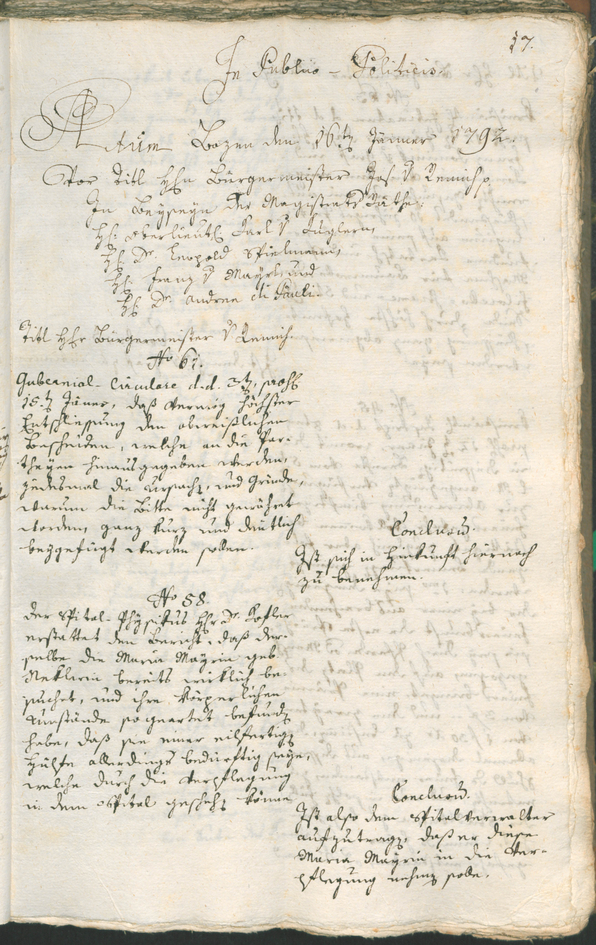 17.
In Publico-Politicis.
Actum Bozen den 16ten Jänner 1792.
Vor Titl Hhn Bürgermeister Jos. v Remich
In Beyseyn der Magistrats Räthe
Hh. Oberlieut. Karl v
Hh. Dr. Leopold Spielmann,
Hh. Franz v Mayrl und
Hh. Dr. Andree di Pauli.
Titl Hhr Bürgermeister v Remich
No 67.
Gubernial-Circulare d. d. 3t, praes
15t Jäner, daß vermög höchster
Entschliessung den abweißlichen
Bescheiden, welche an die Par-
theyen hinausgegeben werden,
jedesmal die Ursache, und Gründe,
warum die Bitte nicht gewähret
worden, ganz kurz und deutlich
beygefügt werden sollen.
Conclusum.
Ist sich in Hinkunft hiernach
zu benehmen.
No 58.
Der Spital-Physikus Hhr Dr. Kofler
erstattet den Bericht, daß der-
selbe die Maria Mayrin geb.
bereits wirklich be-
suchet, und ihre körperlichen
Umstände so geartet befund
habe, daß sie einer eilfertig
Hülfe allerdings bedürftig seye,
welche durch die Verpflegung
in dem Spital geschehen könne
Conclusum.
Ist also dem Spitalverwalter
aufzutragen, daß er diese
Maria Mayrin in die Ver-
pflegung nehmen solle.